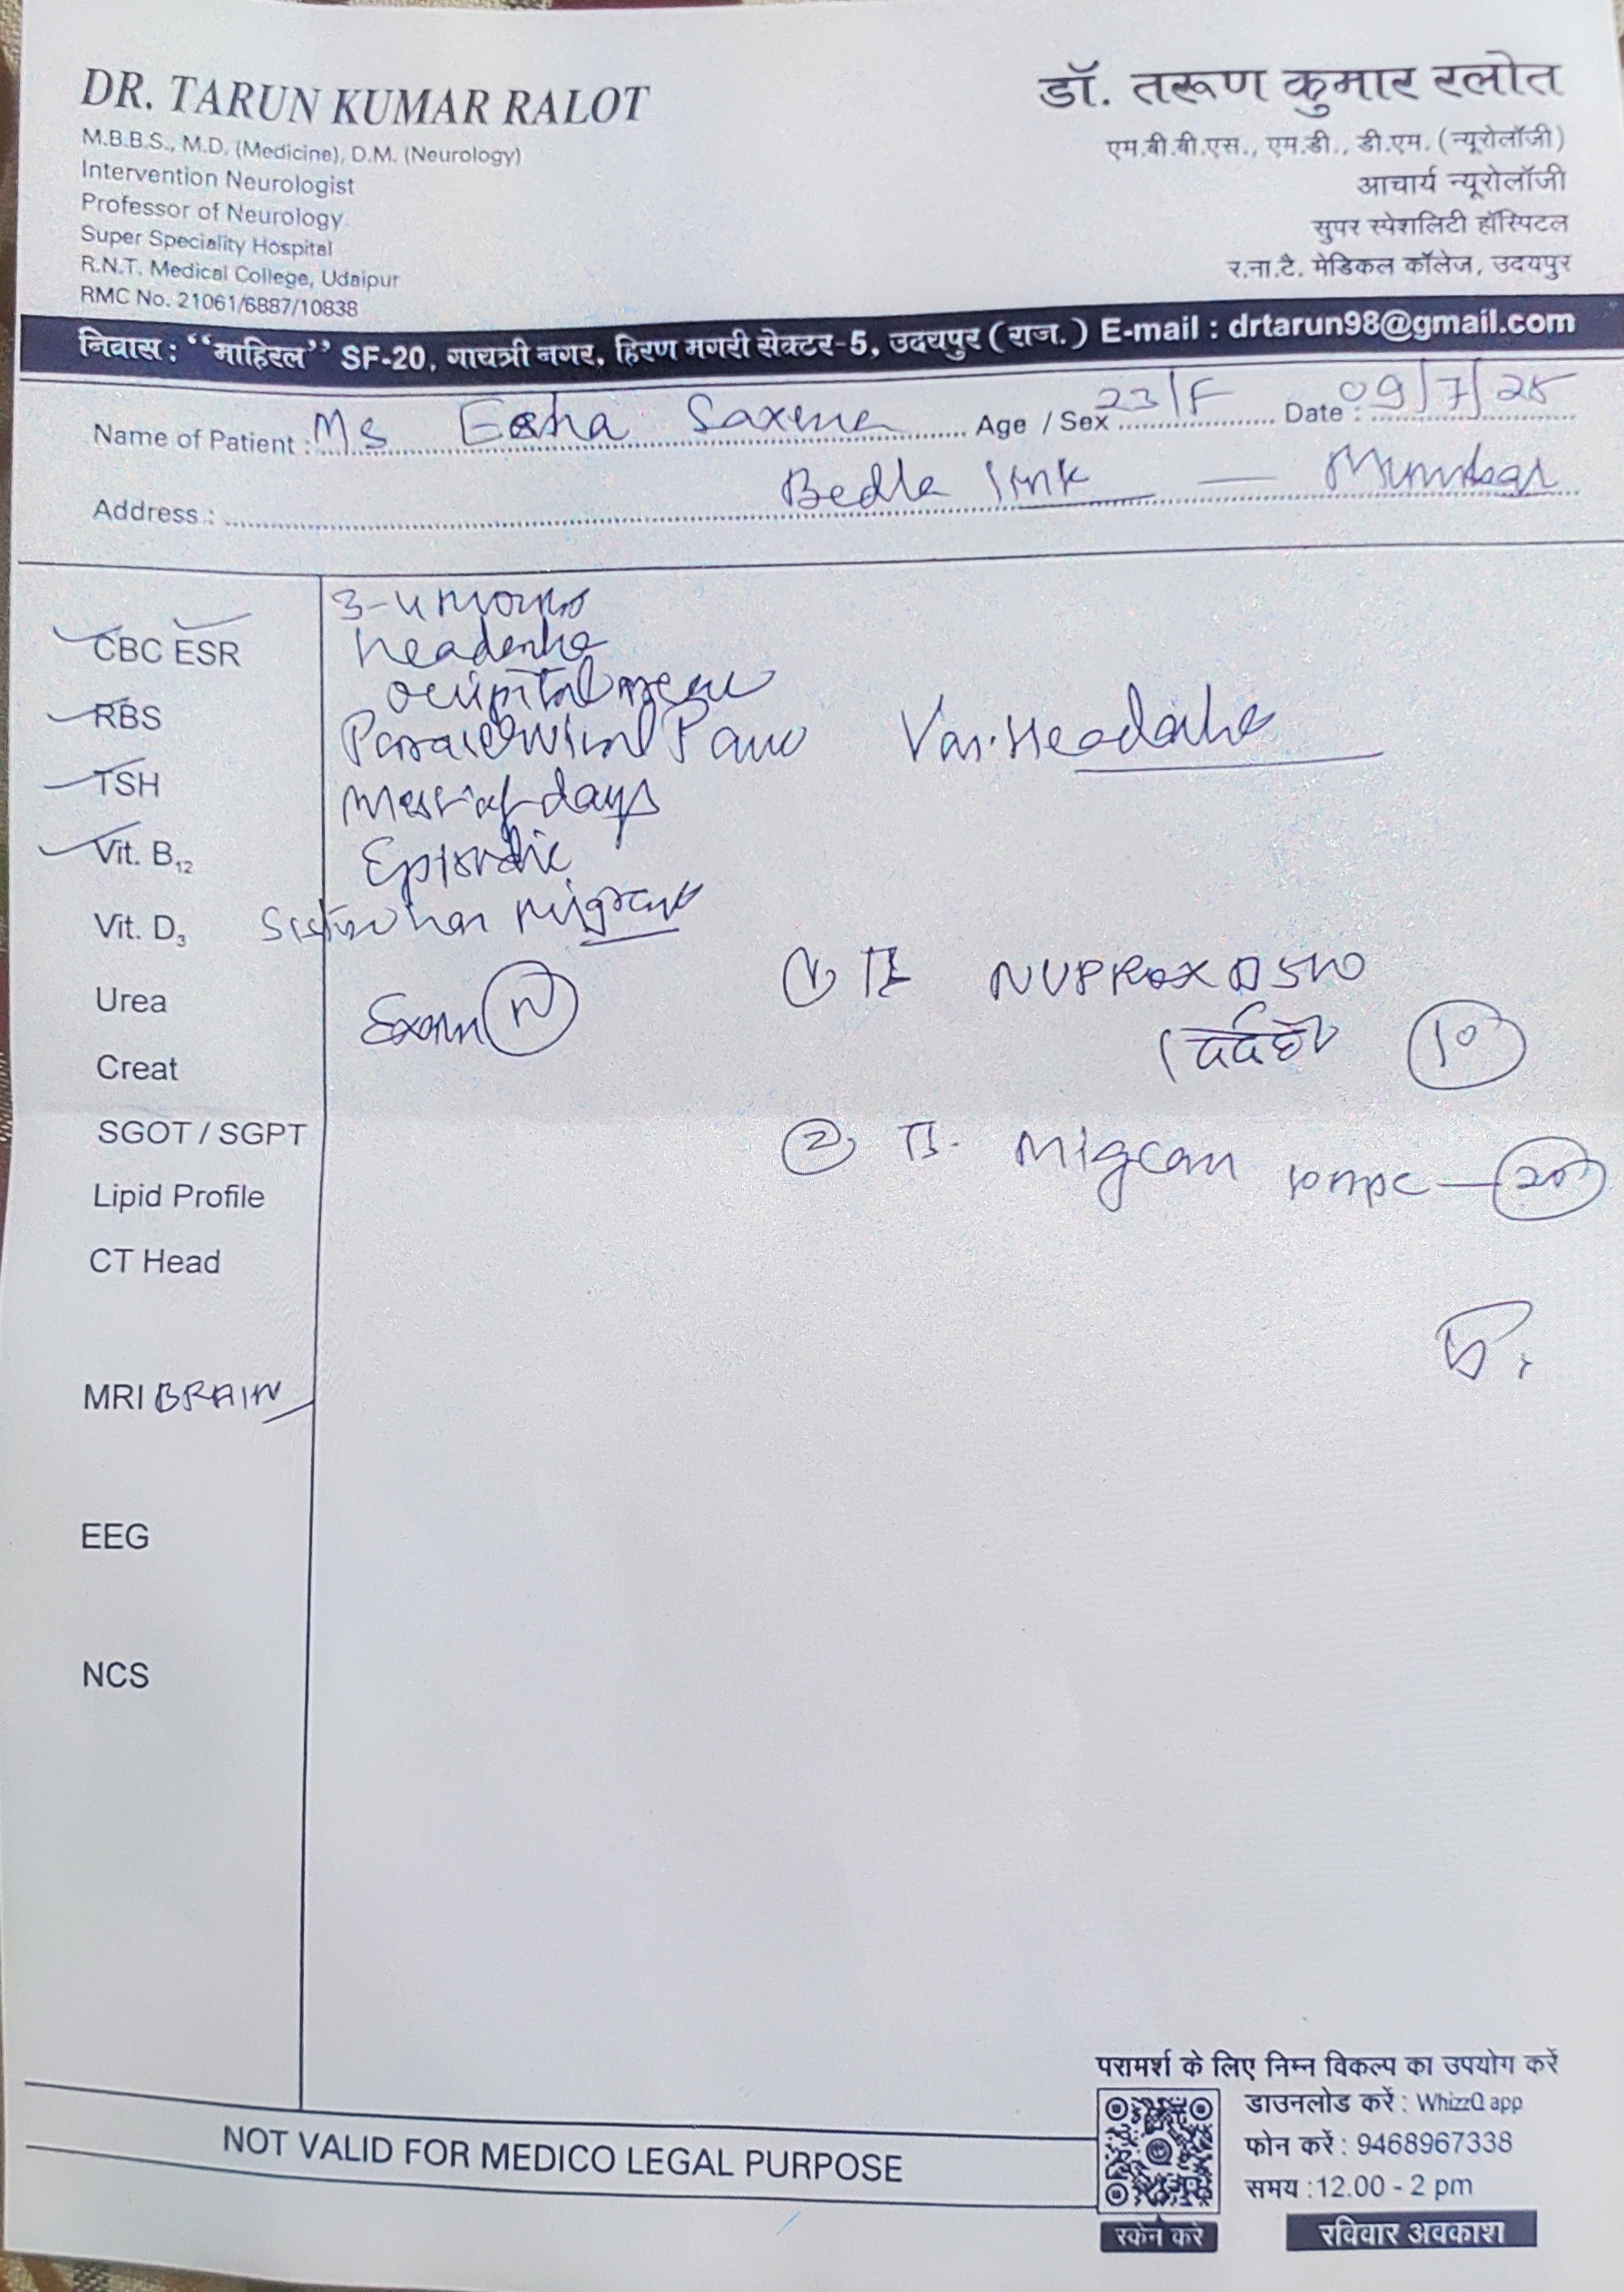 DR. TARUN KUMAR RALOT
M.B.B.S., M.D. (Medicine), D.M. (Neurology)
Intervention Neurologist
Professor of Neurology
Super Speciality Hospital
R.N.T. Medical College, Udaipur
RMC No. 21061/6887/10838
डॉ. तरूण कुमार रलोत
एम.बी.बी.एस., एम.डी., डी.एम. (न्यूरोलॉजी)
आचार्य न्यूरोलॉजी
सुपर स्पेशलिटी हॉस्पिटल
र.ना.टै. मेडिकल कॉलेज, उदयपुर
निवास : "माहिरल" SF-20, गायत्री नगर, हिरण मगरी सेक्टर-5, उदयपुर (राज.) E-mail : drtarun98@gmail.com
Name of Patient : Ms Esha Saxena Age / Sex 23/F Date : 09/7/25
Address : Bedla link — Mumbai
3-4 months
CBC ESR headache
occipital area
RBS Paracervical Pain Vas. Headache
TSH Most of days
Vit. B12 Episodic
Vit. D3 Sister has migraine
Urea Exam N
① NUPROX D 500
Creat (दर्द हो) 10
SGOT / SGPT
② Tb. 20
Lipid Profile
CT Head
MRI BRAIN
EEG
NCS
परामर्श के लिए निम्न विकल्प का उपयोग करें
डाउनलोड करें : WhizzQ app
फोन करें : 9468967338
समय : 12.00 - 2 pm
NOT VALID FOR MEDICO LEGAL PURPOSE
स्केन करे
रविवार अवकाश